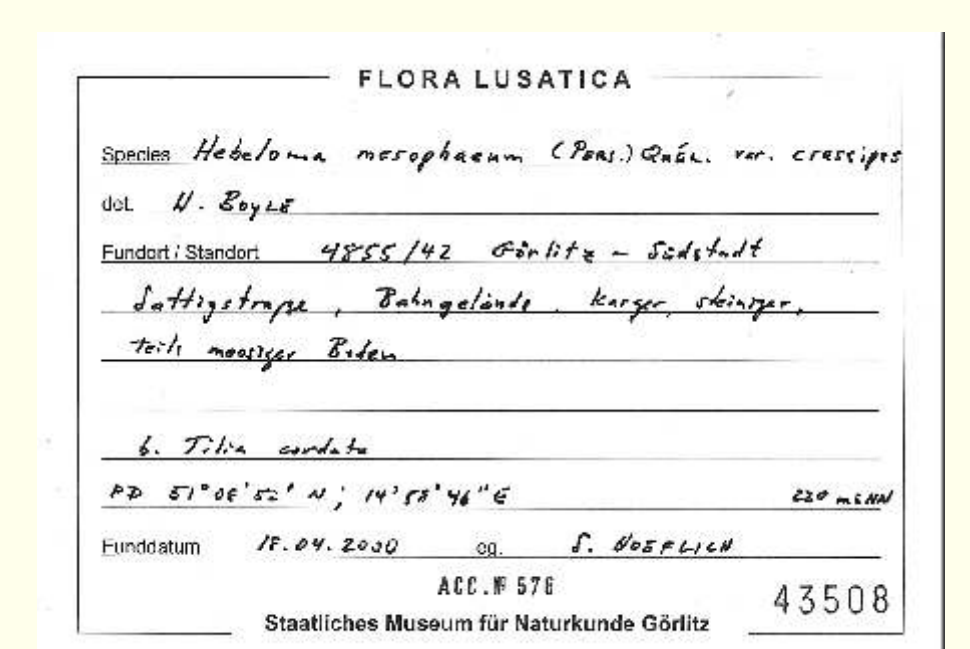 FLORA LUSATICA
Species Hebeloma mesophaeum (Pers.) Quél. var. crassipes
det. H. Boyle
Fundort / Standort 4855/42 Görlitz – Südstadt
Sattigstraße, Bahngelände, karger, steiniger,
teils moosiger Boden
b. Tilia cordata
PD 51°08'52" N; 14°58'46" E 220 msNN
Funddatum .04.2000 eg. S. HOEFLICH
ACC.№ 576
43508
Staatliches Museum für Naturkunde Görlitz